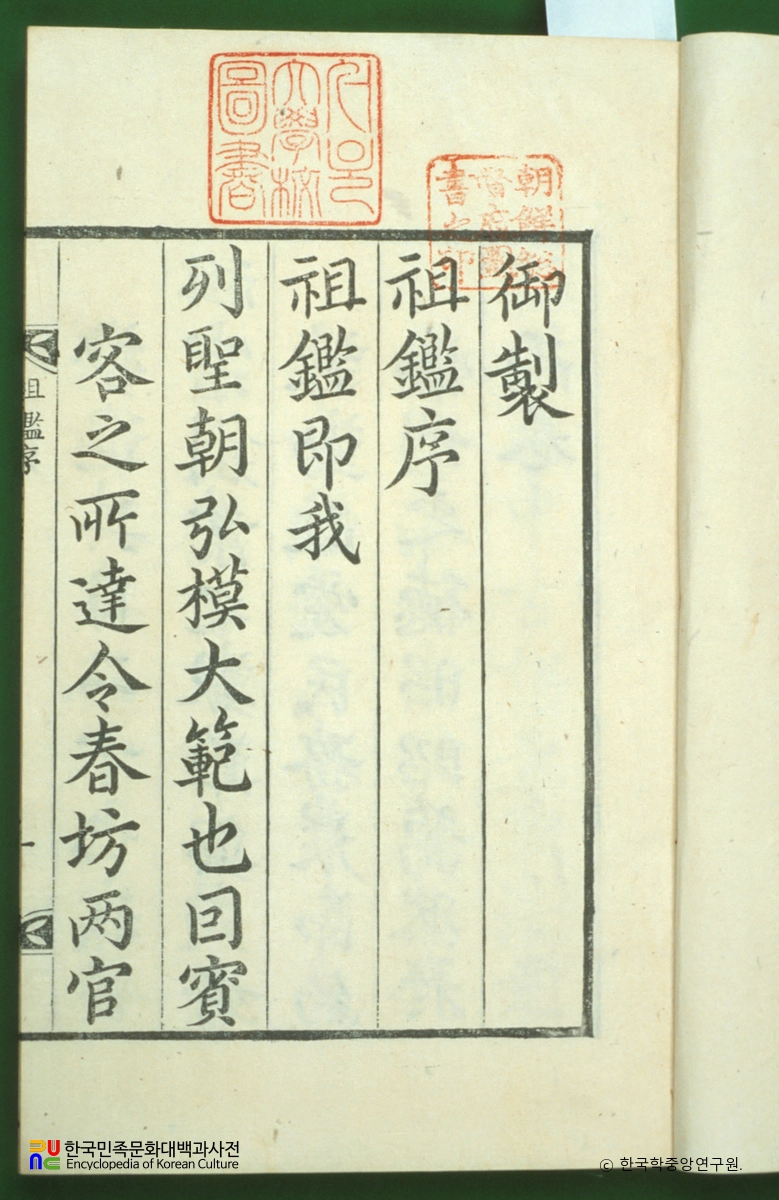 御製
祖鑑序
祖鑑即我
列聖朝弘模大範也回賓
客之所達令春坊两官
祖鑑序
大學校
圖書
朝鮮總
督府圖
書之印
한국민족문화대백과사전
Encyclopedia of Korean Culture
ⓒ 한국학중앙연구원.